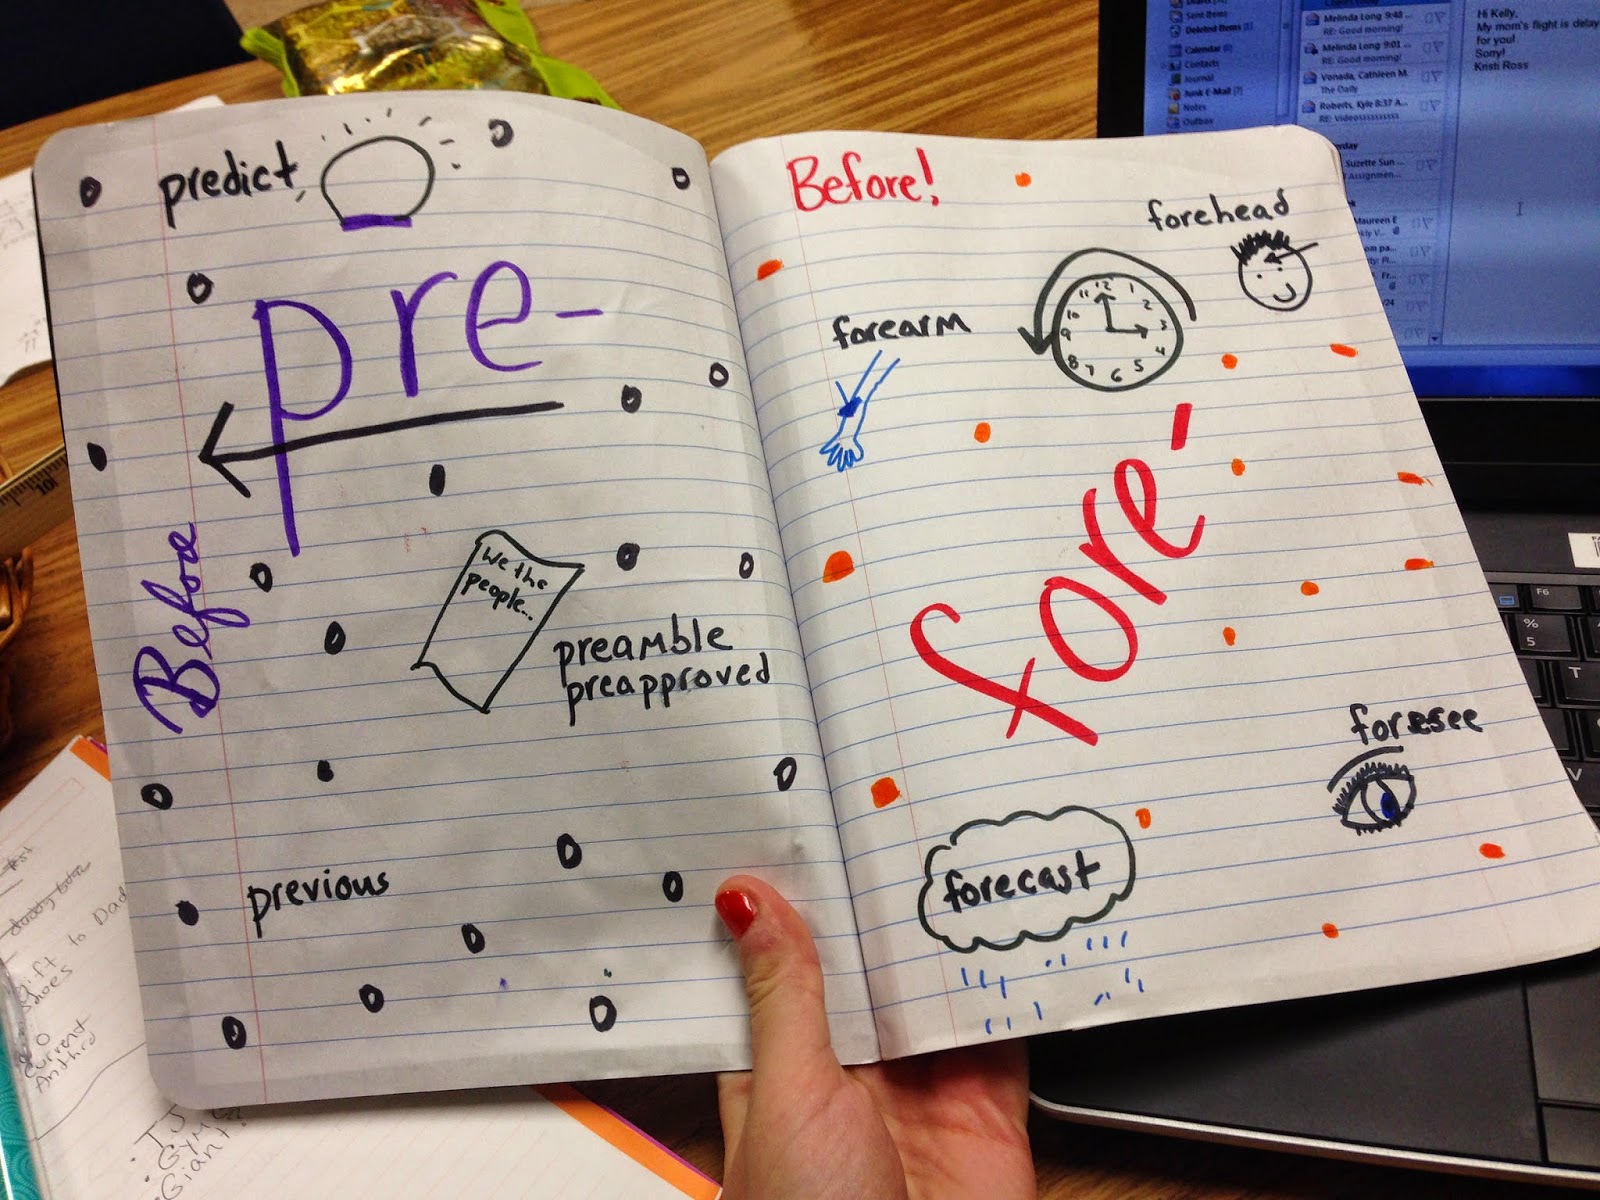 predict
pre-
Before
We the
people...
preamble
preapproved
previous
Before!
forehead
12
1
2
3
4
5
6
7
8
9
10
11
forearm
fore-
foresee
forecast
Sent Items
Deleted Items
Calendar
Contacts
Journal
Junk E-Mail [?]
Notes
Outbox
Melinda Long 9:48 ...
RE: Good morning!
Melinda Long 9:01 ...
RE: Good morning!
Vonada, Cathleen M.
The Daily
Roberts, Kyle 8:37 A...
RE: Videosssssssss
Suzette Sun ...
Assignmen...
Maureen E
Hi Kelly,
My mom's flight is delay
for you!
Sorry!
Kristi Ross
F6
%
5
T
V
to Dad
Gift
Shoes
Current
Anthro
TJ
Gym
Giant